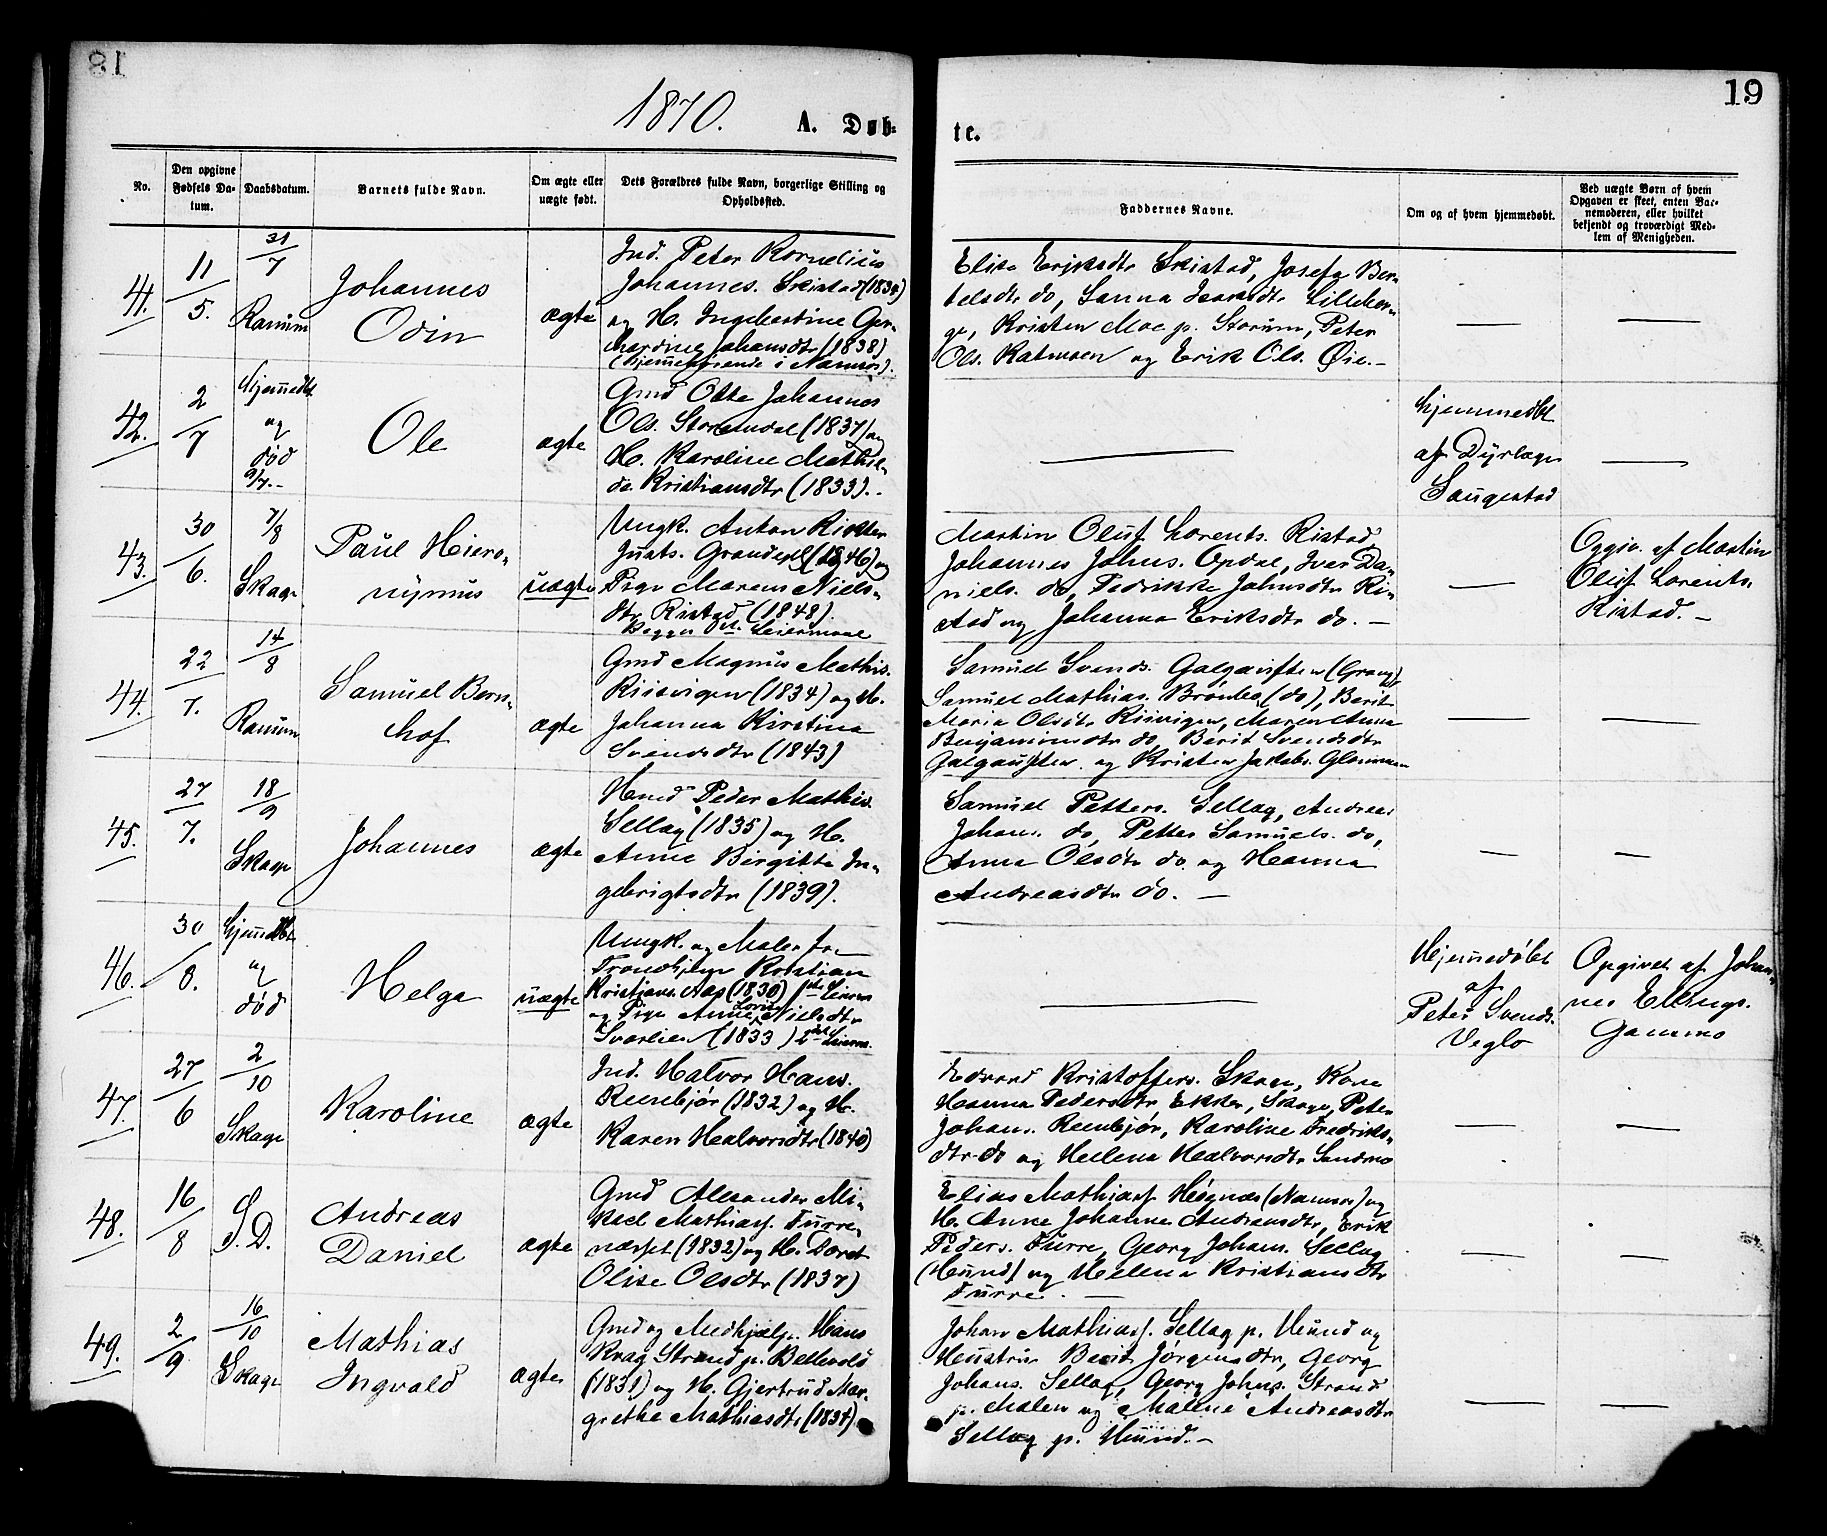 81
19
1870. A. Døb-
te.
No.
Den opgivne
Fødsels Da-
tum.
Daabsdatum.
Barnets fulde Navn.
Om ægte eller
uægte født.
Dets Forældres fulde Navn, borgerlige Stilling og
Opholdssted.
Faddernes Navne.
Om og af hvem hjemmedøbt.
Ved uægte Børn af hvem
Opgaven er skeet, enten Bar-
nemoderen, eller hvilket
bekjendt og troværdigt Med-
lem af Menigheden.
41.
11/5.
31/7
Ranum
Johannes
Odin
ægte
Ind. Peter Kornelius
Johannes. Skistad (1834)
og H. Ingebertine Ger-
hardine Johansdtr (1838)
(hjemmehørende i Namsos).
Elise Eriksdtr Skistad, Josefa Ber-
telsdtr do, Sanna Isaksdtr Lilleber-
ge, Kristen Moe p. Storum, Peter
Ols. Katmoen og Erik Ols. Øie.-
42.
2/7
hjemmedbt
og
død
9/7.-
Ole
ægte
Gmd Otte Johannes
Ols. Storemoe (1837) og
H. Karoline Mathil-
de Kristiansdtr (1833).
hjemmedbt
af Dyrlæge
Saugestad
43.
30/6.
7/8
Skage
Paul Hiero-
nymus
uægte
Ungk. Anton Rikter
Justs. Grandepl (1846) og
Pige Maren Niels-
dtr Ristad (1848).
Begges 1ste Leiermaal
Martin Oluf Lorents. Ristad,
Johannes Johns. Opdal, Iver Da-
niels. do, Fedrikke Johnsdtr Ri-
stad og Johanna Eriksdtr do. -
Opgiv. af Martin
Oluf Lorents.
Ristad. -
44.
22/7.
14/8
Ranum
Samuel Bern-
hof
ægte
Gmd Magnus Mathis.
Riisvigen (1834) og H.
Johanna Kirstina
Svendsdtr (1843)
Samuel Svends. Galgauften (Grong)
Samuel Mathias. Brønbo (do), Berit
Maria Olsdtr Riisvigen, Maren Anna
Benjaminsdtr do, Berit Svendsdtr
Galgauften og Kristen Jakobs. Glømmen
45.
27/7.
18/9
Skage
Johannes
ægte
Hmd Peder Mathis.
Sellæg (1835) og H.
Anne Birgitta In-
gebrigtsdtr (1839).
Samuel Petters. Sellæg, Andreas
Johans. do, Petter Samuels. do,
Anna Olsdtr do og Hanna
Andreasdtr do. -
46.
30/8.
hjemedbt
og
død
Helga
uægte
Ungk. og Maler fra
Trondhjem Kristian
Kristians. Aas (1830) 1ste Leierm
og Pige Anne Nielsdtr
Svarlien (1833) 2det Leierm.
Hjemmedøbt
af
Peter Svends.
Veglo
Opgivet af Johan-
nes Ellings.
Gammo
47.
27/6
2/10
Skage
Karoline
ægte
Ind. Halvor Hans.
Reinbjør (1832) og H.
Karen Halvorsdtr (1840)
Edvard Kristoffers. Skage, Kone
Hanna Pedersdtr Ekker, Skage, Peter
Johans. Reinbjør, Karoline Fredriks-
dtr do og Hellena Halvorsdtr Sandmo
48.
16/8
S.D.
Andreas
Daniel
ægte
Gmd Alexander Mi-
kael Mathiass. Furre-
næsset (1832) og H. Doret
Olise Olsdtr (1837)
Elias Mathiass. Høgnæs (Namsos) og
H. Anne Johanne Andreasdtr, Erik
Peders. Furre, Georg Johans. Sellæg
(Hunnd) og Hellena Kristiansdtr
Furre. -
49.
2/9
16/10
Skage
Mathias
Ingvald
ægte
Gmd og Medhjælp. Hans
Krag Strand p. Bellevold
(1831) og H. Gjertrud Mar-
grethe Mathiasdtr (1834)
Johan Mathiass. Sellæg p. Hunnd og
Hustru Berit Jørgensdtr, Georg
Johans. Sellæg, Georg Johns. Strand
p. Malen og Maline Andreasdtr
Sellæg p. Hunnd. -